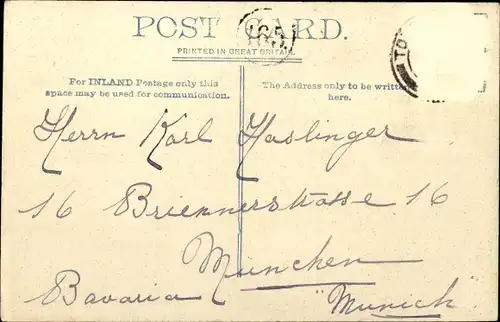 POST CARD.
165
PRINTED IN GREAT BRITAIN.
For INLAND Postage only this
space may be used for communication.
The Address only to be written
here.
TO
Herrn Karl Haslinger
16 Briennerstrasse 16
München
Bavaria "Munich"